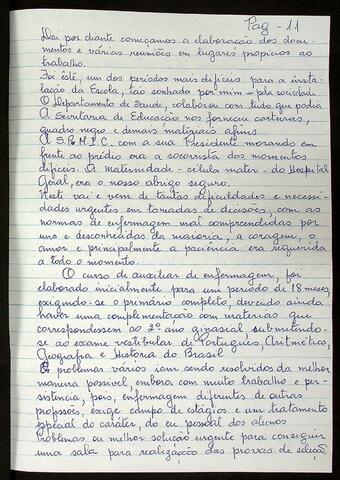 Pag - 11
Daí por diante começamos a elaboração dos docu-
mentos e várias reuniões em lugares propícios ao
trabalho.
Foi êste, um dos períodos mais difíceis para a insta-
lação da Escola, tão sonhada por mim e pela sociedade
O Departamento de Saude, colaborou com tudo que podia
A Secretaria de Educação nos forneceu carteiras,
quadro negro e demais materiais afins.
A S.P.M.I.C. com a sua Presidente morando em
frente ao prédio era a socorrista dos momentos
difíceis. A maternidade - célula mater - do Hospital
Geral, era o nosso abrigo seguro.
Neste vai e vem de tantas dificuldades e necessi-
dades urgentes em tomadas de decisões, com as
normas de enfermagem mal compreendidas por
uns e desconhecidas da maioria, a coragem, o
amor e principalmente a paciência era requerida
a todo o momento.
O curso de auxiliar de enfermagem, foi
elaborado inicialmente para um período de 18 meses,
exigindo-se o primário completo, devendo ainda
haver uma complementação com matérias que
correspondessem ao 2º ano ginasial submetendo-
se ao exame vestibular de Português, Aritmética,
Geografia e História do Brasil
problemas vários iam sendo resolvidos da melhor
maneira possivel, embora com muito trabalho e per-
sistencia, pois, enfermagem diferentes de outras
profissões, exige campo de estágios e um tratamento
especial do caráter, do eu pessoal dos alunos
Problemas ou melhor solução urgente para conseguir
uma sala para realização das provas de seleção,